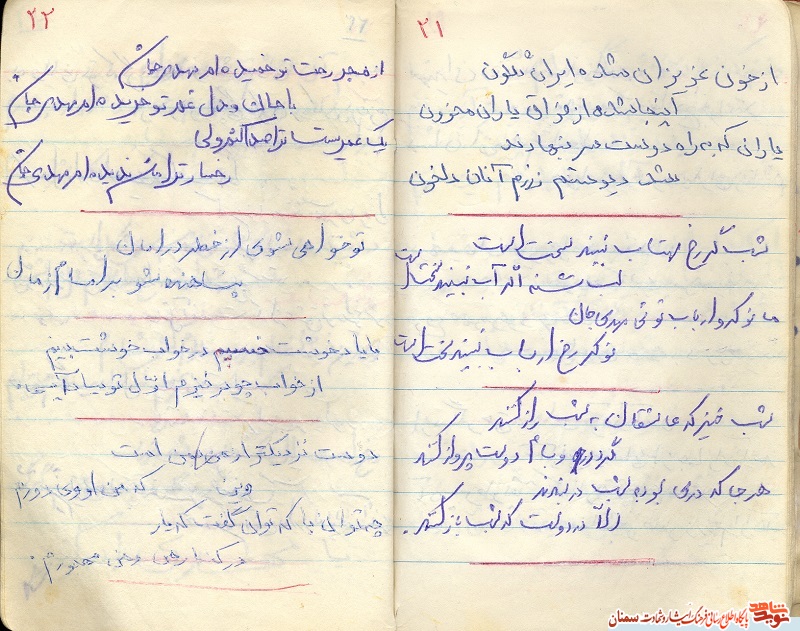 ۲۱
از خون عزیزان شده ایران گلگون
اینجا شده از فراق یاران محزون
یارانی که به راه دوست سر بنهادند
عشاق دیو صفتم زرزم آنان دلخون
شب گر رخ مهتاب نبیند سخت است
لب تشنه اگر آب نبیند سخت است
ما نوکر و ارباب توئی مهدی جان
نوکر رخ ارباب نبیند سخت است
شب خیز که عاشقان به شب راز کنند
گرد در و بام دوست پرواز کنند
هر جا که دری بود به شب در بندند
الا در دوست که شب باز کنند.
۲۲
از هجر رخت تو خمیده ام مهدی جان
با جان و دل غم تو خریده ام مهدی جان
یک عمر است ترا صدا کنم ولی
رخسار ترا ندیده ام مهدی جان
تو خواهی شوی از خطر در امان
پناهنده شو بر امام زمان
با یاد خوشت خسبم در خواب خوشت بینم
از خواب چو برخیزم اول تو بیاد آیی.
دوست نزدیکتر از من به من است
وین که من از وی دورم
چه توانی با که توان گفت که یار
در کنار من و من مهجورم.
نوید شاهد
پایگاه اطلاع رسانی فرهنگ ایثار و شهادت سمنان